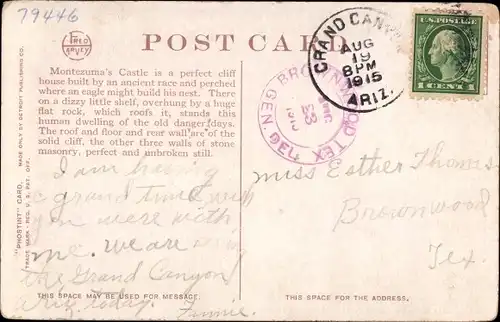 79446
FRED
HARVEY
POST CARD
Montezuma's Castle is a perfect cliff
house built by an ancient race and perched
where an eagle might build his nest. There
on a dizzy little shelf, overhung by a huge
flat rock, which roofs it, stands this
human dwelling of the old danger days.
The roof and floor and rear wall are of the
solid cliff, the other three walls of stone
masonry, perfect and unbroken still.
"PHOSTINT" CARD.
TRADE MARK REG. U.S. PAT. OFF.
MADE ONLY BY DETROIT PUBLISHING CO.
I am having
a grand time wish
you were with
me. we are
the Grand Canyon
Ariz today. Finnie.
THIS SPACE MAY BE USED FOR MESSAGE.
GRAND CANYON
AUG
19
8PM
1915
ARIZ.
BROWNWOOD TEX
GEN. DEL.
U.S. POSTAGE
1 CENT 1
Miss Esther Thomas
Brownwood
Tex.
THIS SPACE IS FOR THE ADDRESS.